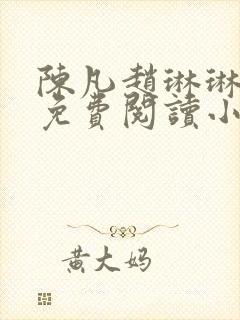 陳凡趙琳琳
免費閱讀小
黃大妈